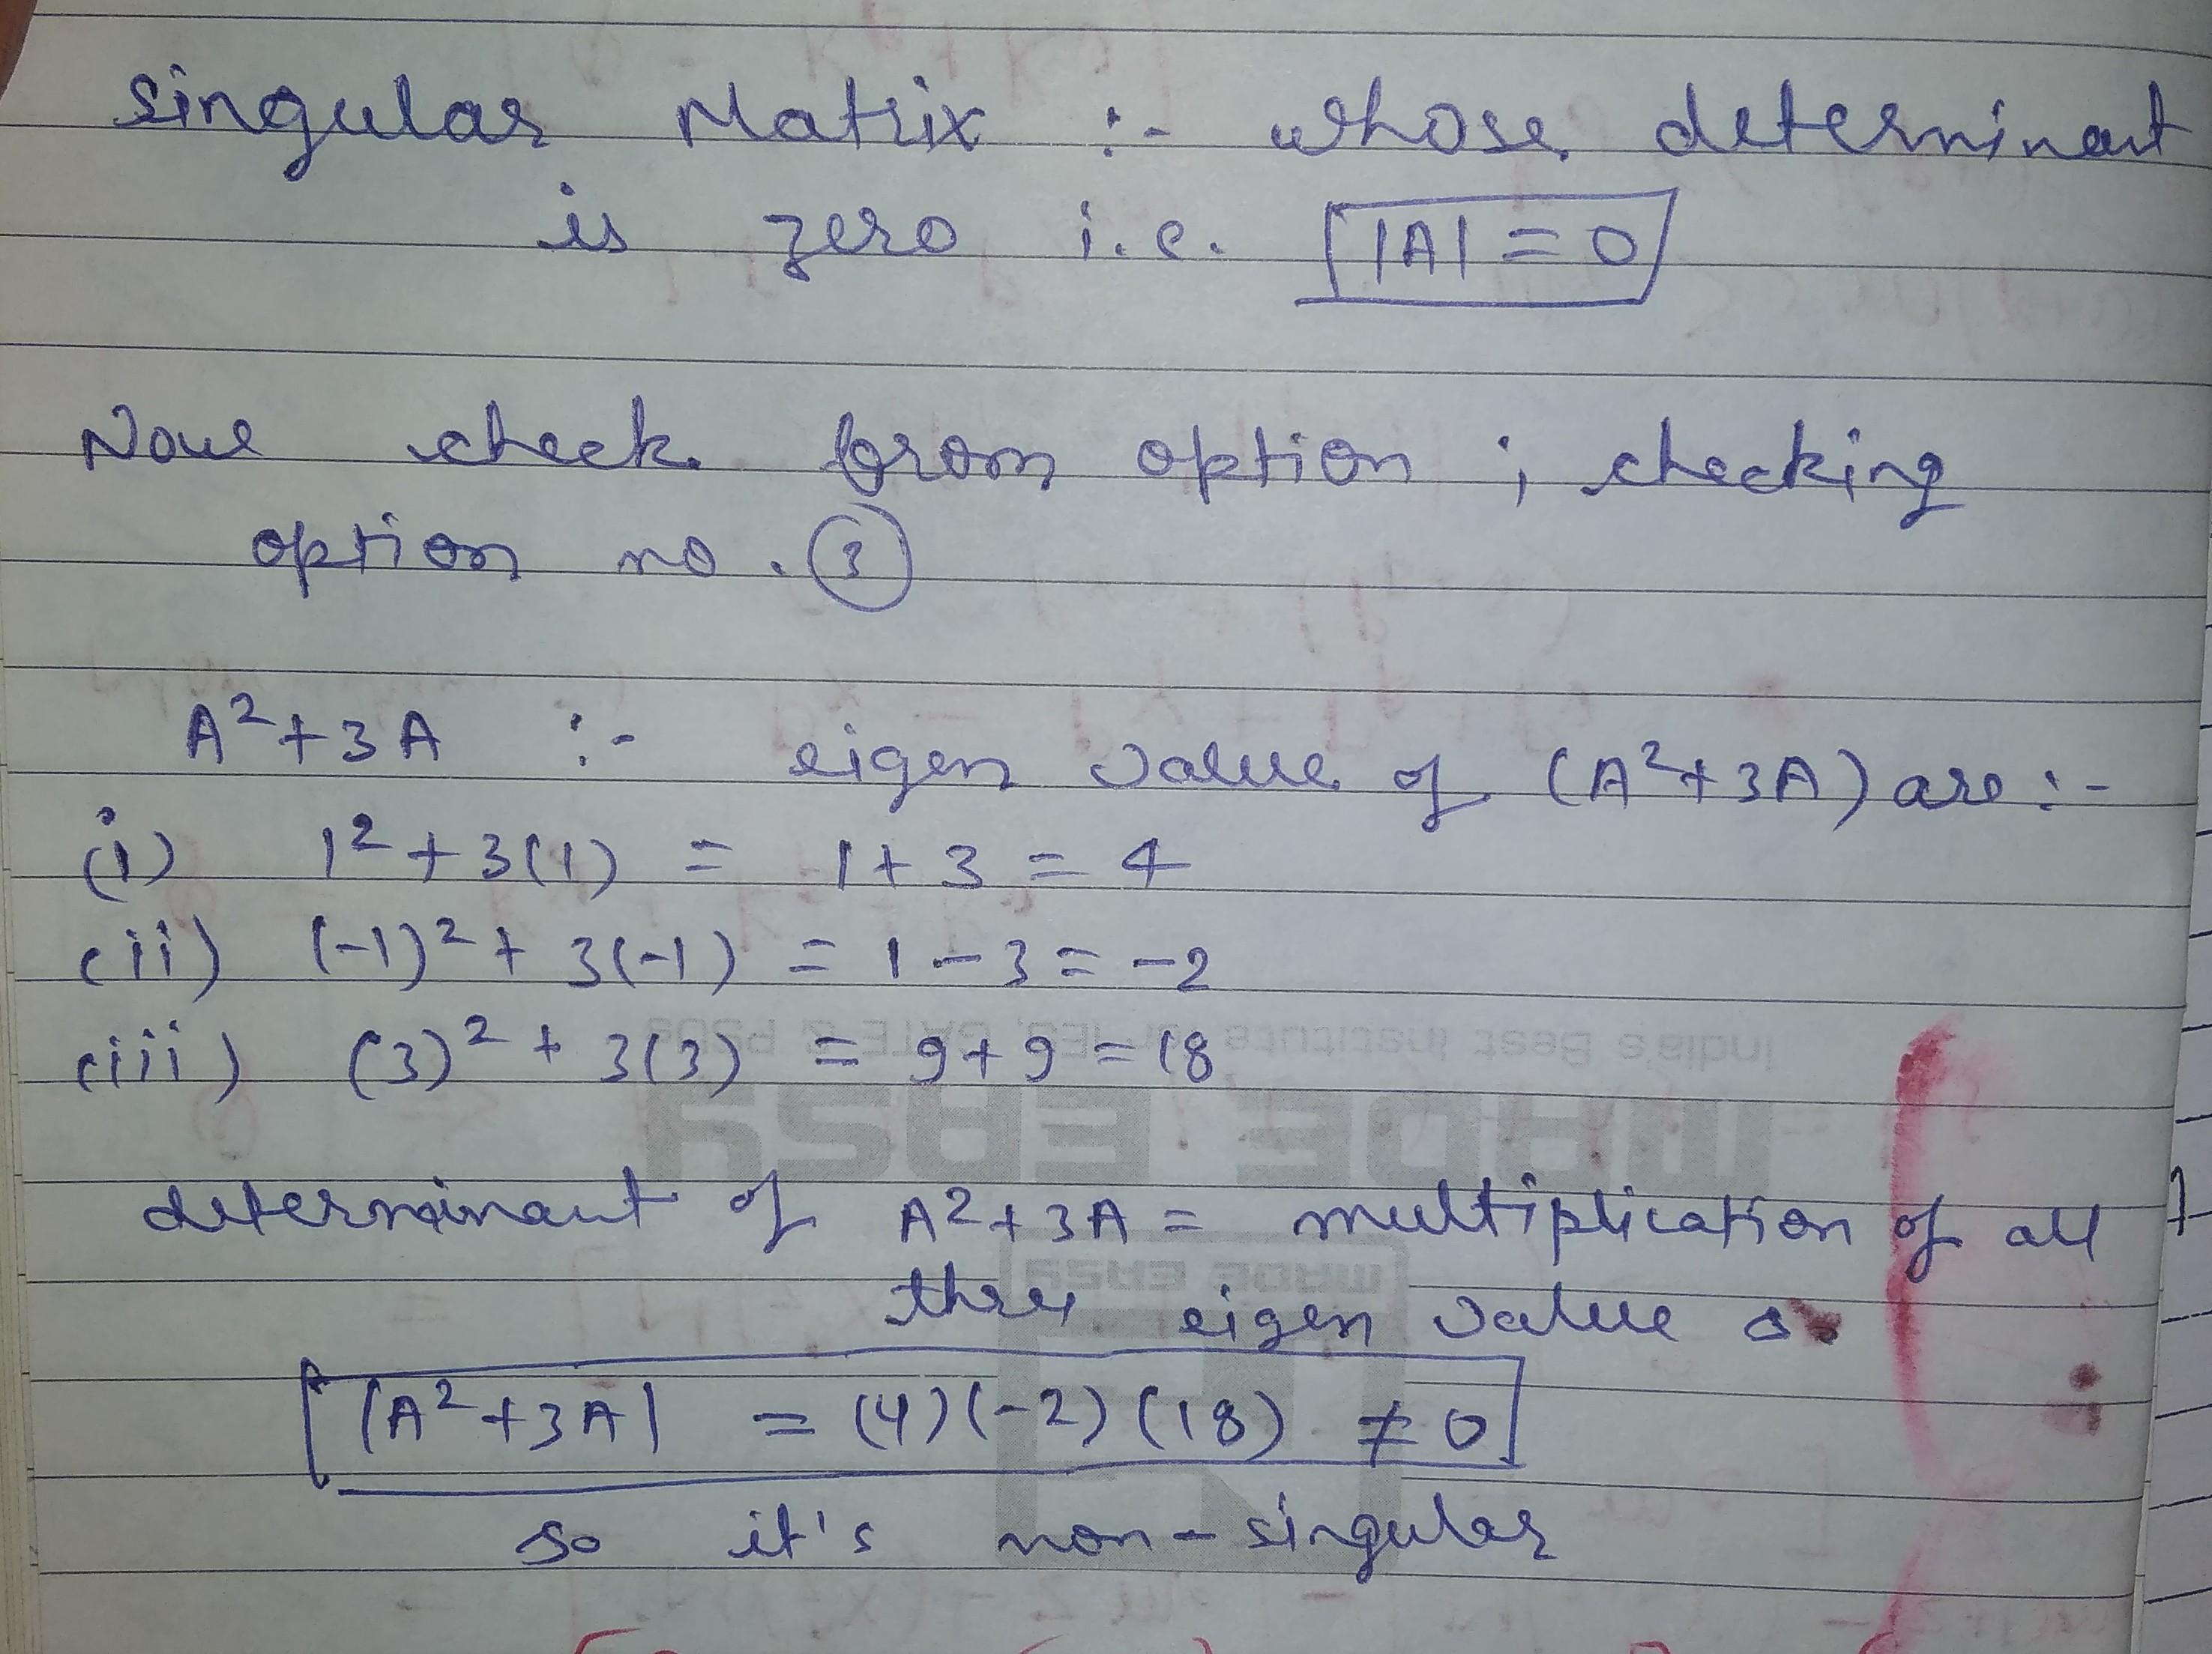 singular Matrix :- whose determinant
is zero i.e. |A| = 0
Now check from option ; checking
option no. 3
A²+3A :- eigen value of (A²+3A) are :-
(i) 1² + 3(1) = 1 + 3 = 4
(ii) (-1)² + 3(-1) = 1 - 3 = -2
(iii) (3)² + 3(3) = 9 + 9 = 18
determinant of A²+3A = multiplication of all
three eigen value s
|A²+3A| = (4)(-2)(18) ≠ 0
so it's non-singular